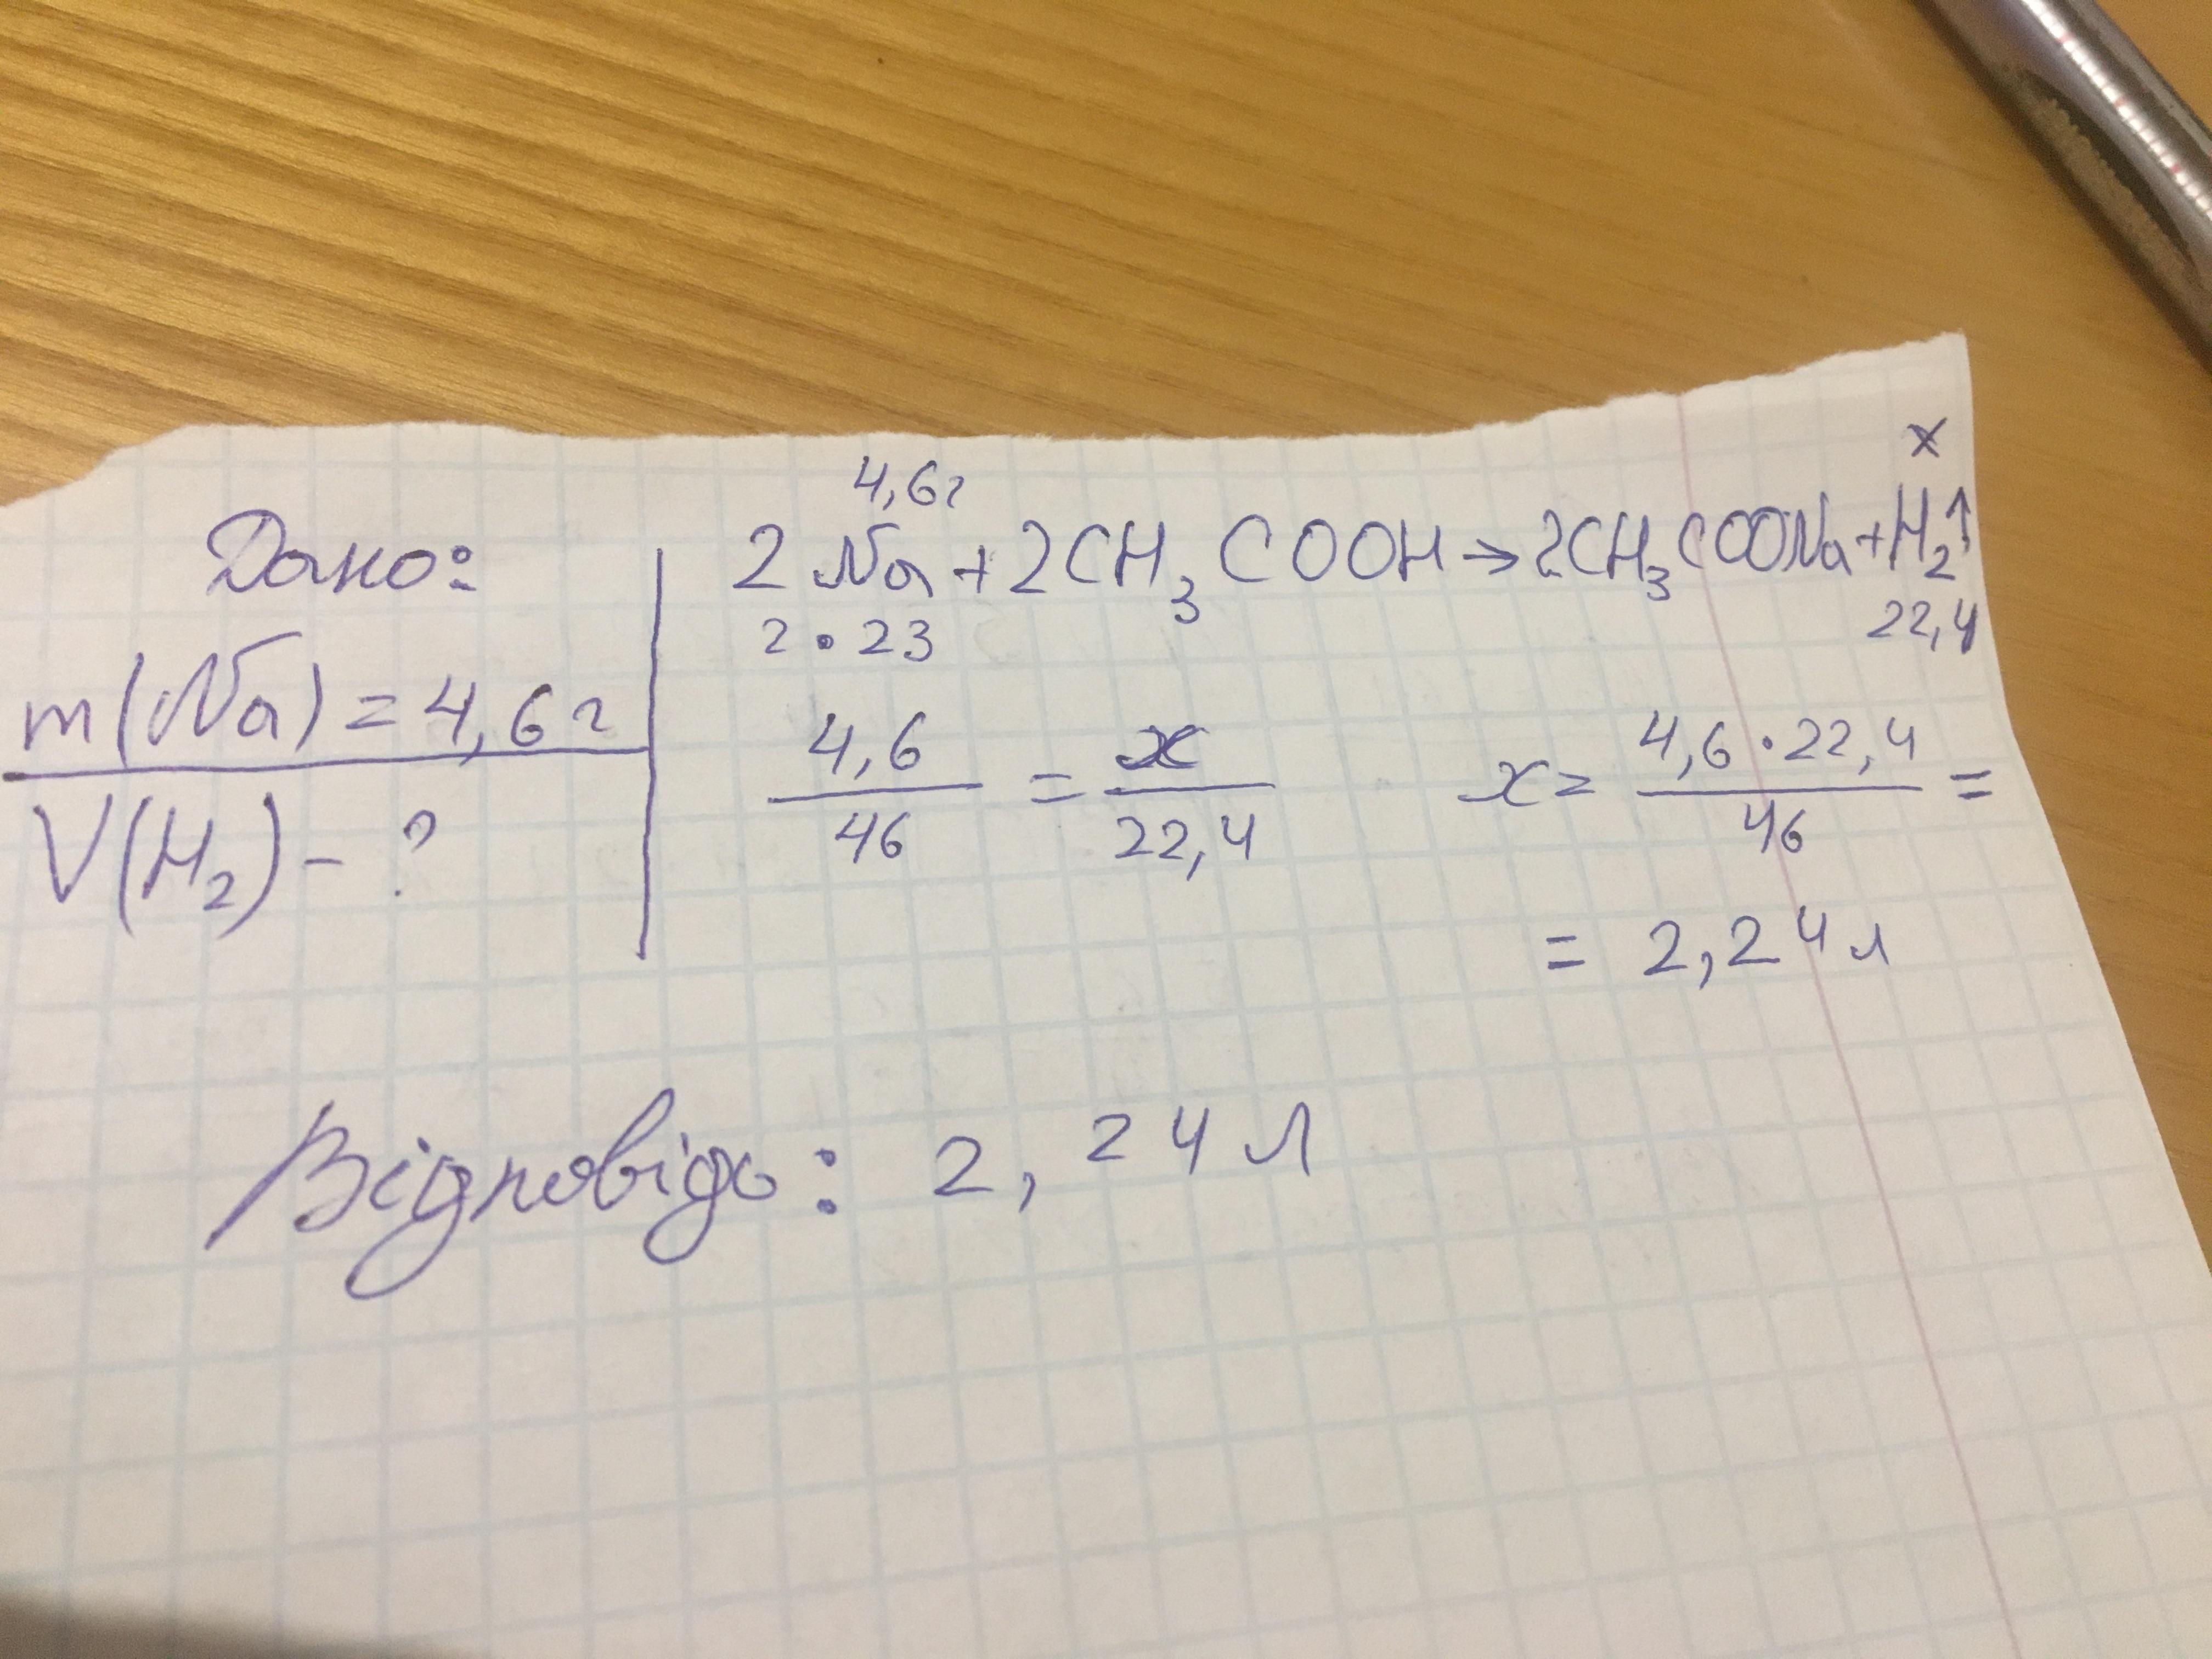 Дано:
m(Na) = 4,6г
V(H₂) - ?
4,6г x
2Na + 2CH₃COOH → 2CH₃COONa + H₂↑
2 • 23 22,4
4,6/46 = x/22,4 x = 4,6 • 22,4/46 =
= 2,24 л
Відповідь: 2,24 л